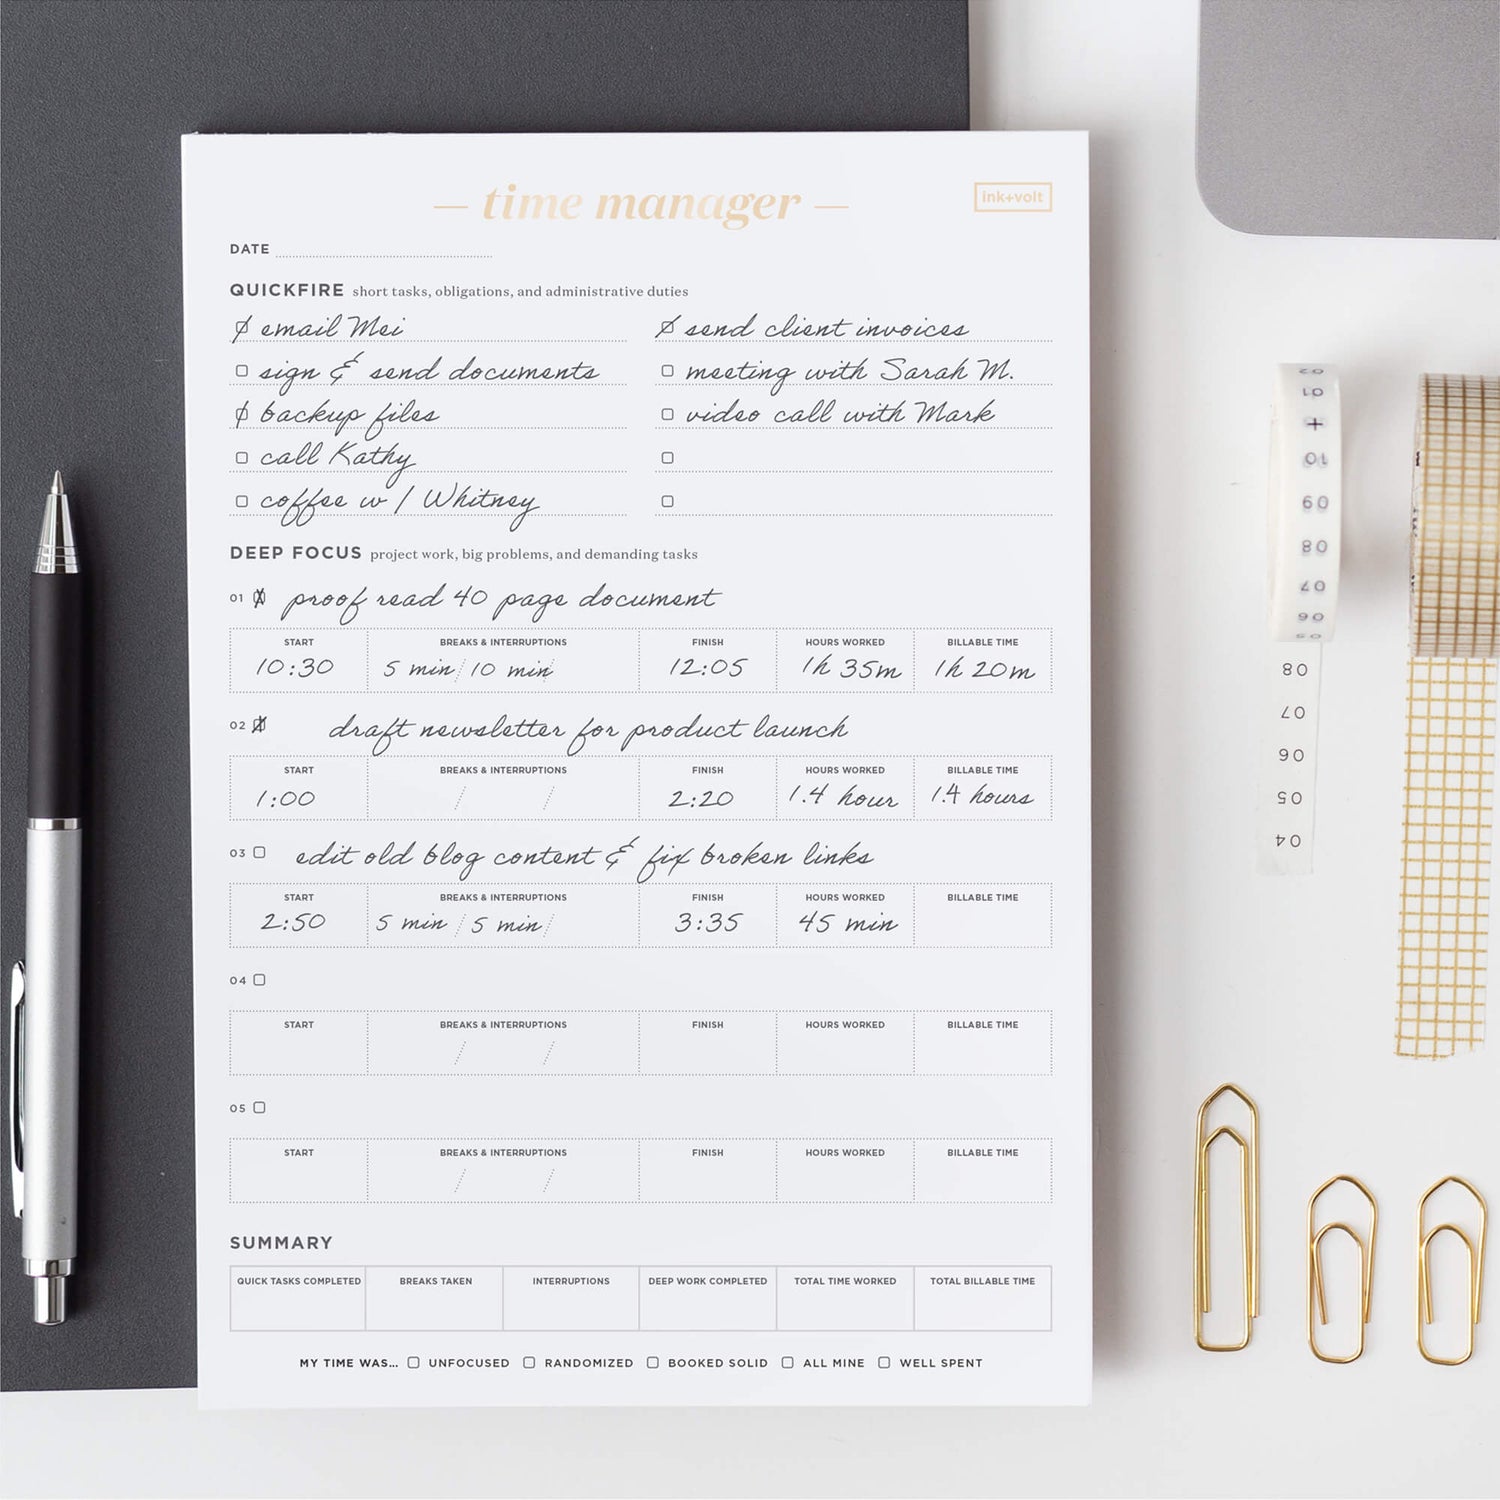 time manager
ink+volt
DATE
QUICKFIRE short tasks, obligations, and administrative duties
email Mei
send client invoices
sign & send documents
meeting with Sarah M.
backup files
video call with Mark
call Kathy
coffee w / Whitney
DEEP FOCUS project work, big problems, and demanding tasks
01 proof read 40 page document
START BREAKS & INTERRUPTIONS FINISH HOURS WORKED BILLABLE TIME
10:30 5 min / 10 min 12:05 1h 35m 1h 20m
02 draft newsletter for product launch
START BREAKS & INTERRUPTIONS FINISH HOURS WORKED BILLABLE TIME
1:00 / / 2:20 1.4 hour 1.4 hours
03 edit old blog content & fix broken links
START BREAKS & INTERRUPTIONS FINISH HOURS WORKED BILLABLE TIME
2:50 5 min / 5 min / 3:35 45 min
04
START BREAKS & INTERRUPTIONS FINISH HOURS WORKED BILLABLE TIME
/ /
05
START BREAKS & INTERRUPTIONS FINISH HOURS WORKED BILLABLE TIME
/ /
SUMMARY
QUICK TASKS COMPLETED BREAKS TAKEN INTERRUPTIONS DEEP WORK COMPLETED TOTAL TIME WORKED TOTAL BILLABLE TIME
MY TIME WAS... UNFOCUSED RANDOMIZED BOOKED SOLID ALL MINE WELL SPENT
01
+
10
09
08
07
06
08
07
06
05
04